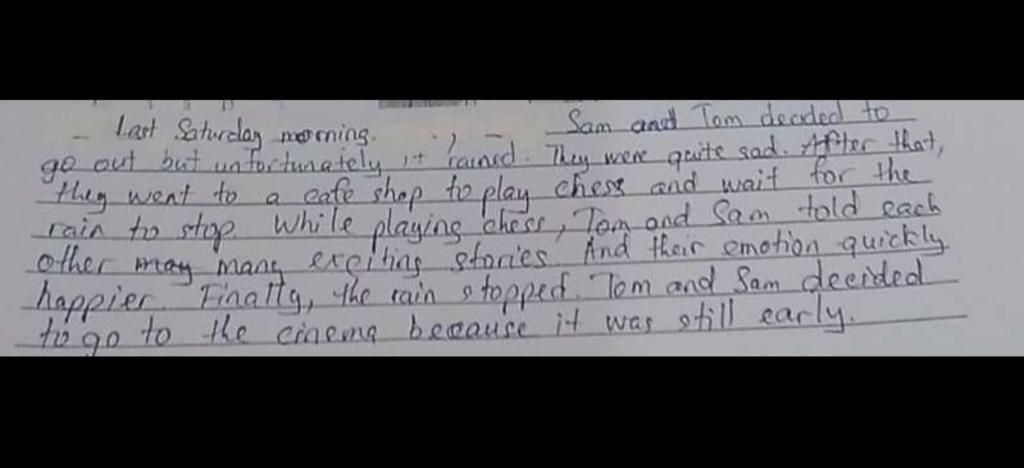 - Last Saturday morning. Sam and Tom decided to
go out but unfortunately, it rained. They were quite sad. After that,
they went to a cafe shop to play chess and wait for the
rain to stop. While playing chess, Tom and Sam told each
other may many exciting stories. And their emotion quickly
happier. Finally, the rain stopped. Tom and Sam decided
to go to the cinema because it was still early.